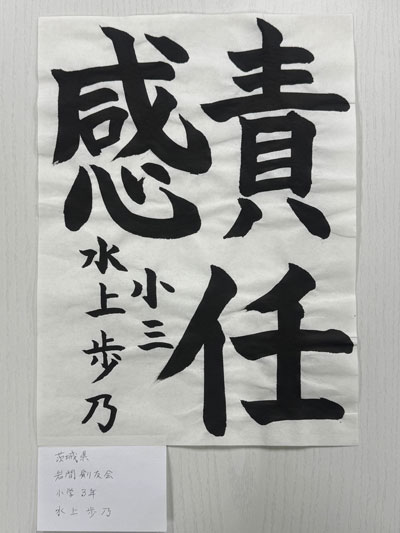 責任
感
小三
水上歩乃
茨城県
岩間剣友会
小学3年
水上歩乃